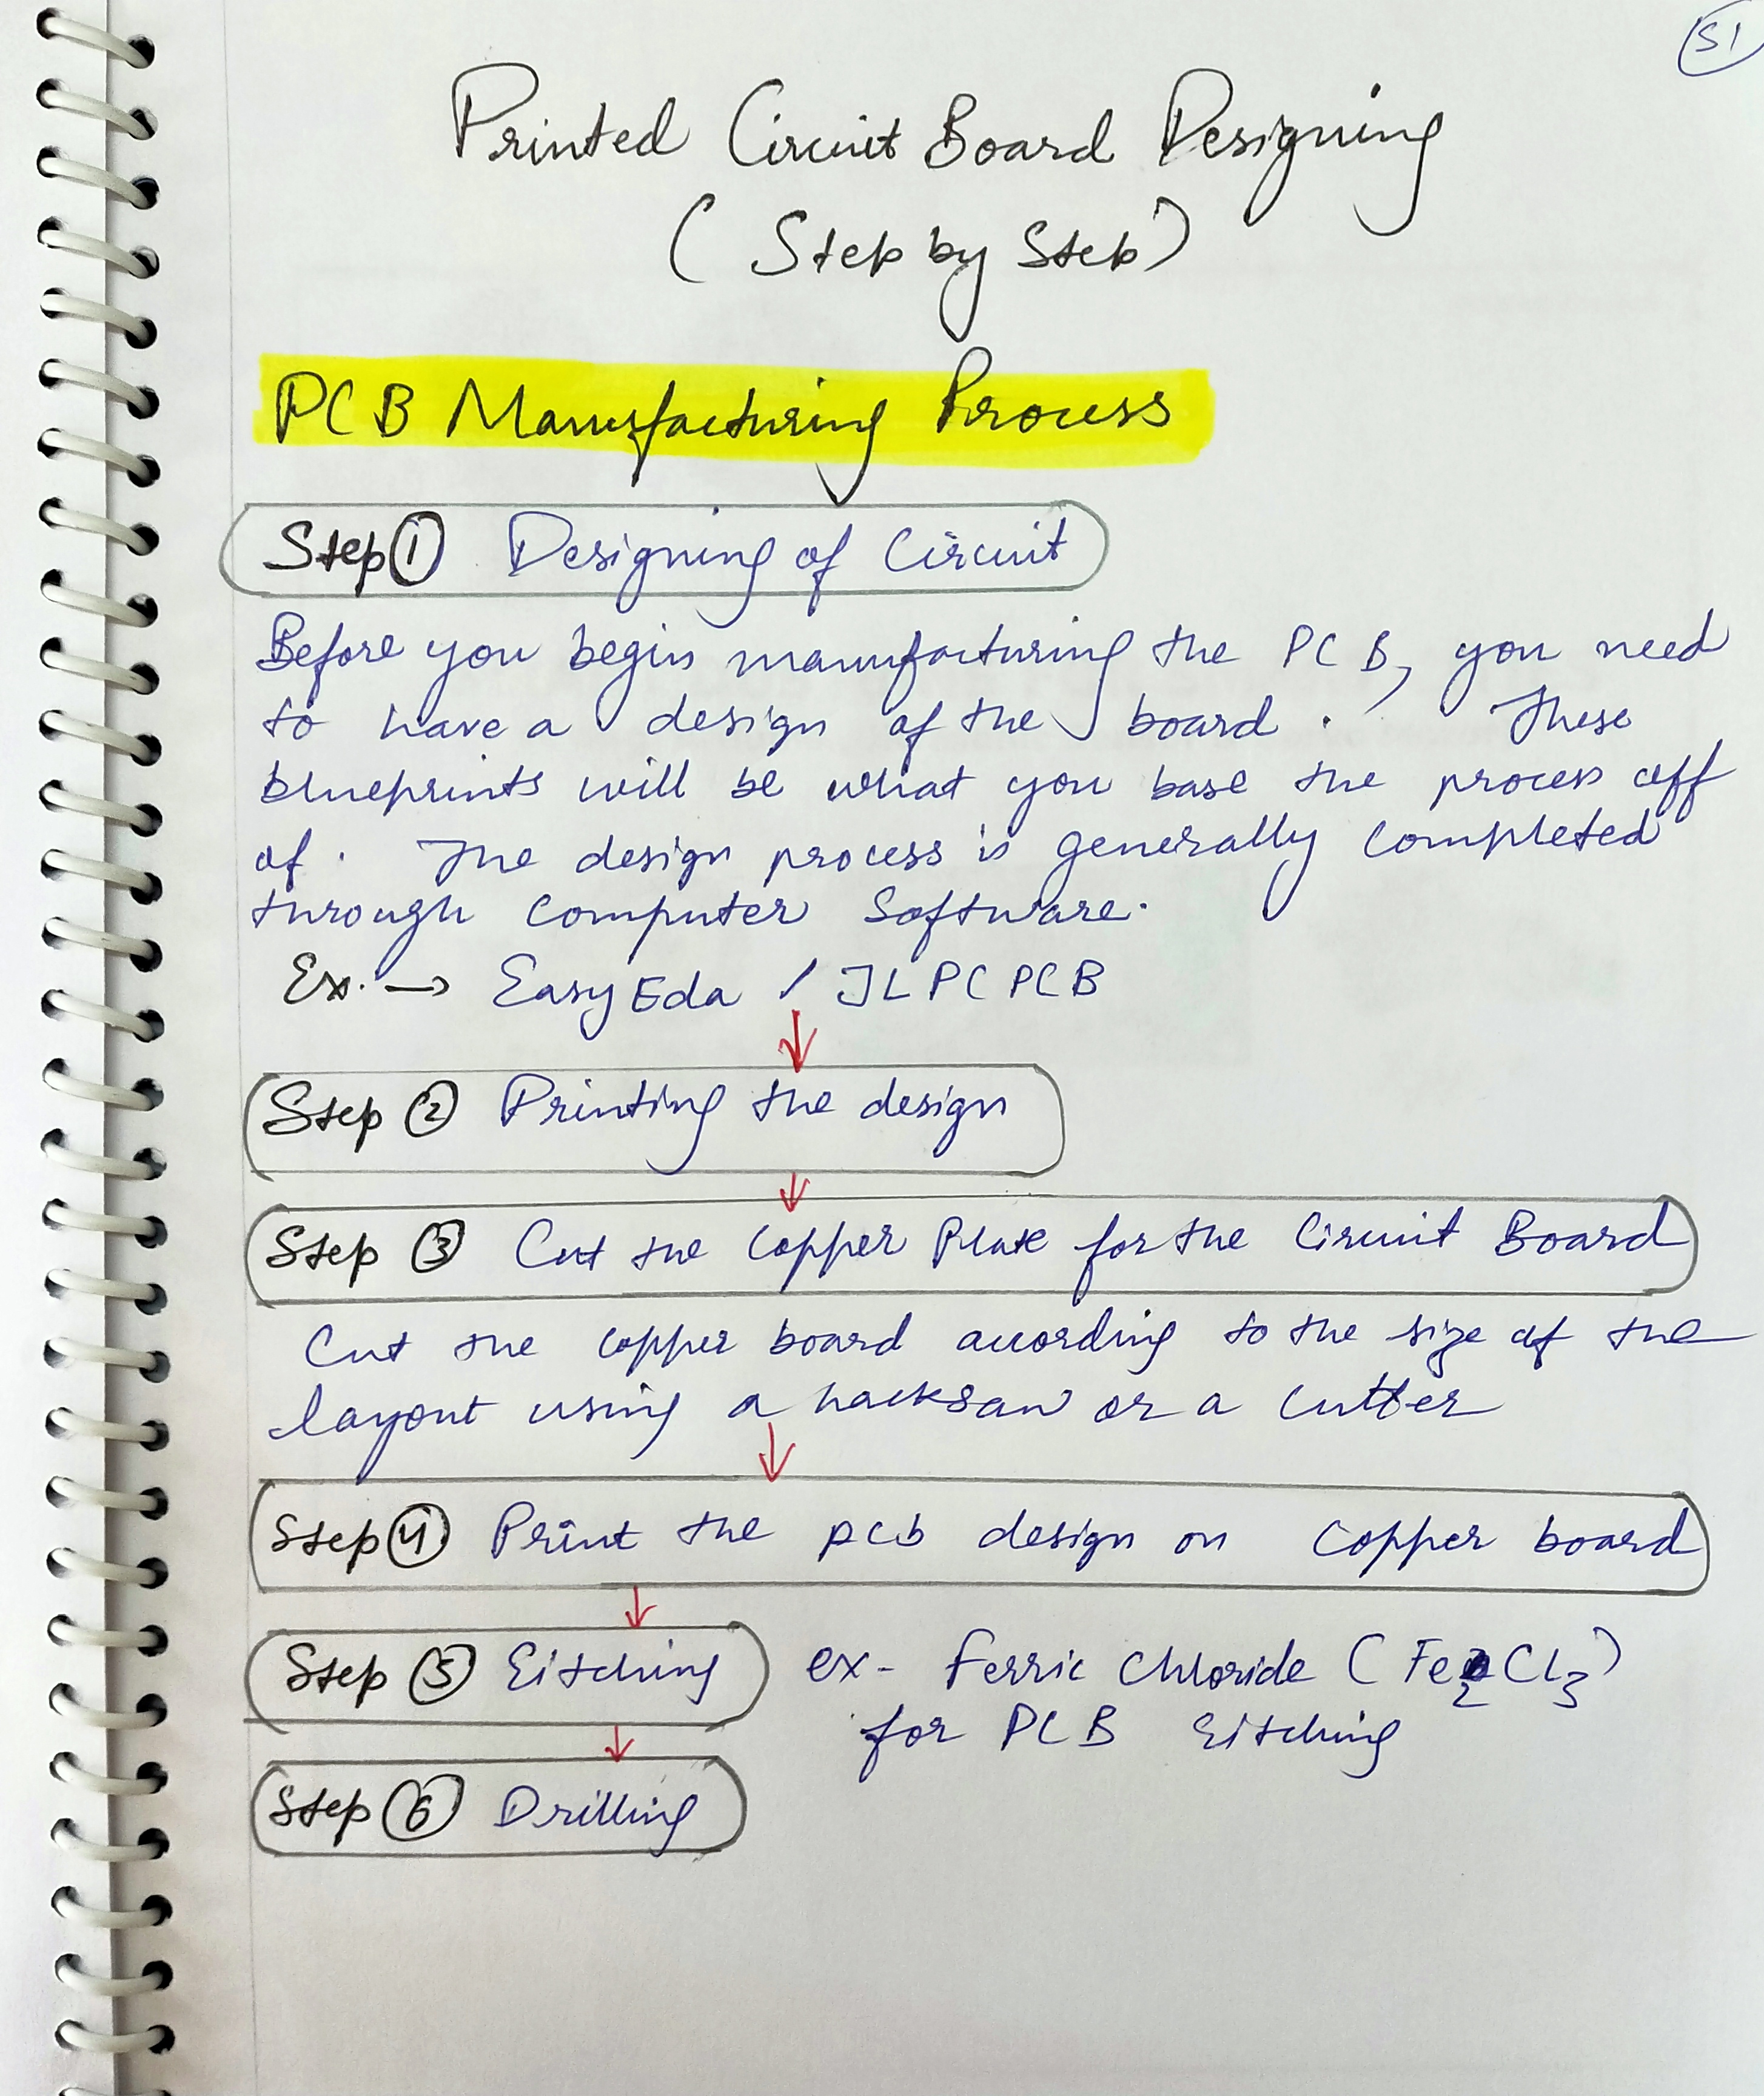 51
Printed Circuit Board Designing
(Step by Step)
PCB Manufacturing Process
Step 1 Designing of Circuit
Before you begin manufacturing the PCB, you need
to have a design of the board. These
blueprints will be what you base the process off
of. The design process is generally completed
through Computer Software.
Ex. → EasyEda / JLPCPCB
Step 2 Printing the design
Step 3 Cut the Copper Plate for the Circuit Board
Cut the copper board according to the size of the
layout using a hacksaw or a cutter
Step 4 Print the pcb design on Copper board
Step 5 Eitching ex- Ferric Chloride (Fe₂Cl₃)
for PCB Eitching
Step 6 Drilling